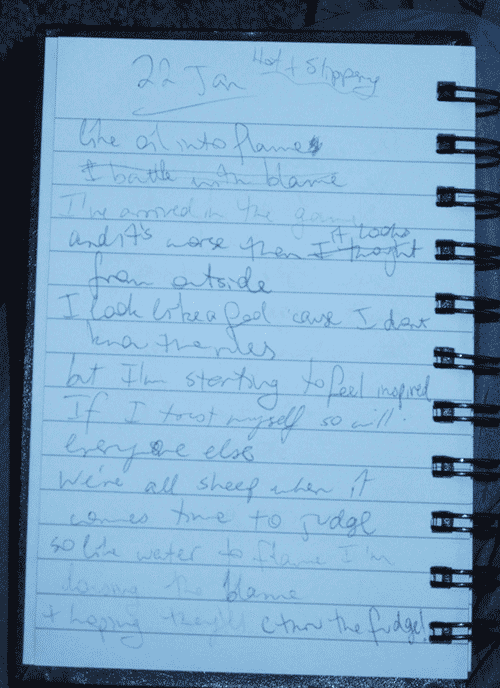 22 Jan Hot + Slippery
like oil into flames
I battle with blame
I've arrived in the game
and it's worse then I thought it looks
from outside
I look like a fool 'cause I dont
know the rules
but I'm starting to feel inspired
If I trust myself so will
everyone else
We're all sheep when it
comes time to judge
so like water to flame I'm
the blame
+ hoping they'll the fudge!